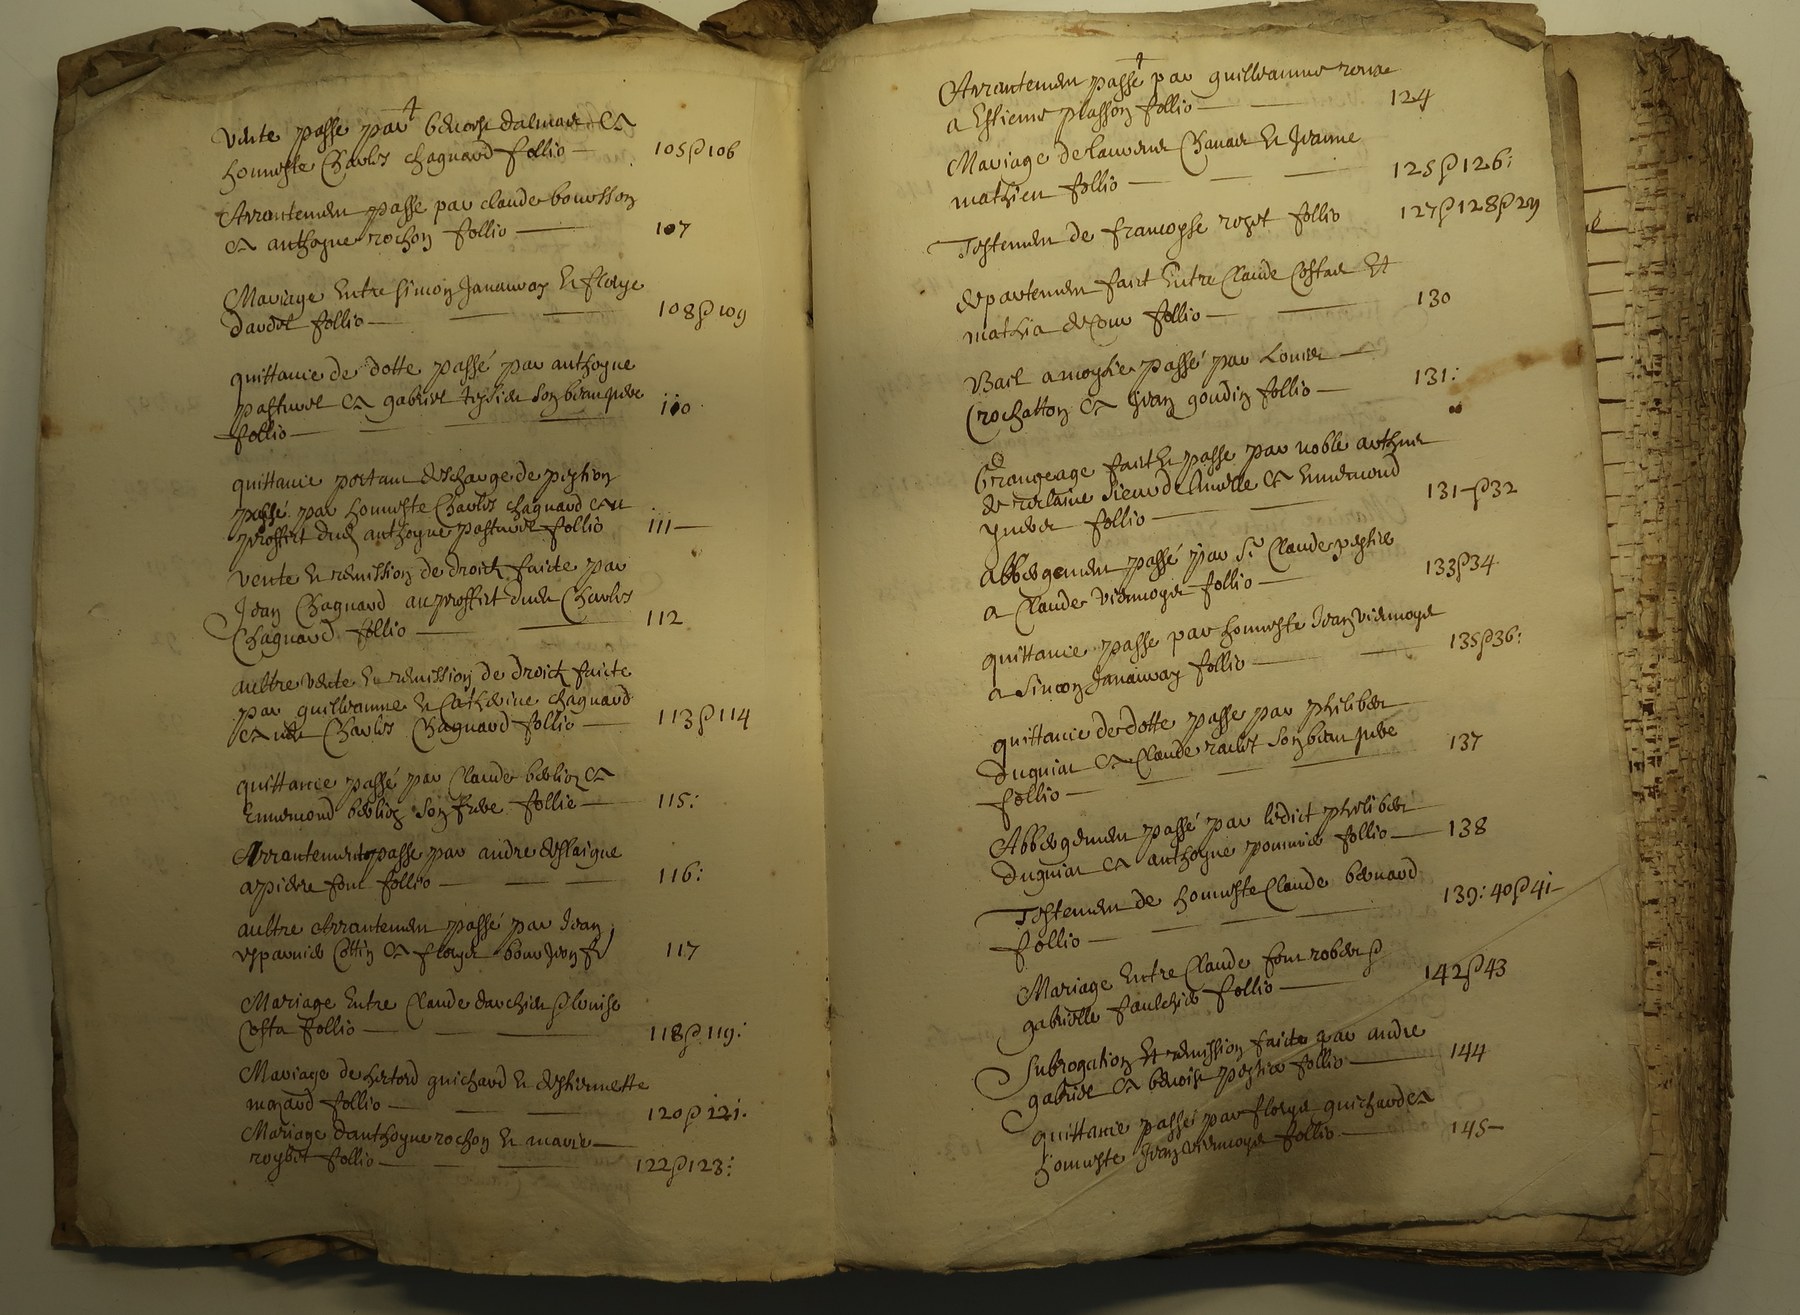 vente passé par benoist dalmais ca
honneste Charles chagnard follio 105 & 106
Arrantemen passe par claude bouesson
ca anthoyne rochon follio 107
Mariage Entre simon Janauray Et florye
dardel follio 108 & 109
quittance de dotte passé par anthoyne
pasturel ca gabriel son beau pere
follio 110
quittance portant descharge de pention
passé par honneste Charles chagnard can
proffict dud anthoyne pasturel follio 111
vente Et remission de droictz faicte par
Jean Chagnard au proffict dud Charles
Chagnard follio 112
aultre vente Et remission de droictz faicte
par guilleaume Et Catherine chagnard
Charles Chagnard follio 113 & 114
quittance passé par Claude berlioz ca
Ennemond berlioz son frere follie 115:
Arrantement passe par andre deslaigue
a pierre font follio 116:
aultre Arrantemen passé par Jean
Cottin ca florye 117
Mariage Entre Claude darchier & louise
Costa follio 118 & 119:
Mariage de hector guichard Et destiennette
mozard follio 120 & 121.
Mariage danthoyne rochon Et marie
roybet follio 122 & 123:
Arrantemen passé par guilleaume
a Estienne plasson follio 124
Mariage de laurens Chanae Et Jeanne
mathieu follio 125 & 126:
Testemen de francoyse rozet follio 127 & 128 & 29
departemen faict Entre Claude Costae Et
mathia follio 130
Bail a moytie passé par Louise
Crochatton ca Jean goudin follio 131:
Grangeage faict Et passe par noble arthur
de Sieur de ca Ennemond
follio 131 & 32
Abbergemen passé par Sr Claude
a Claude viermoye follio 133 & 34
quittance passe par honneste Jean viermoye
a Simon Janauray follio 135 & 36:
quittance de dotte passe par philiber
duguiat ca Claude raclet son beau pere
follio 137
Abbergemen passé par ledict philiber
duguiat ca anthoyne follio 138
Testemen de honneste Claude bernard
follio 139: 40 & 41
Mariage Entre Claude font rober &
gabrielle faulchier follio 142 & 43
Subrogation Et remission faicte par andre
gabriel ca benoist follio 144
quittance passé par florye guichard ca
honneste Jean viermoye follio 145